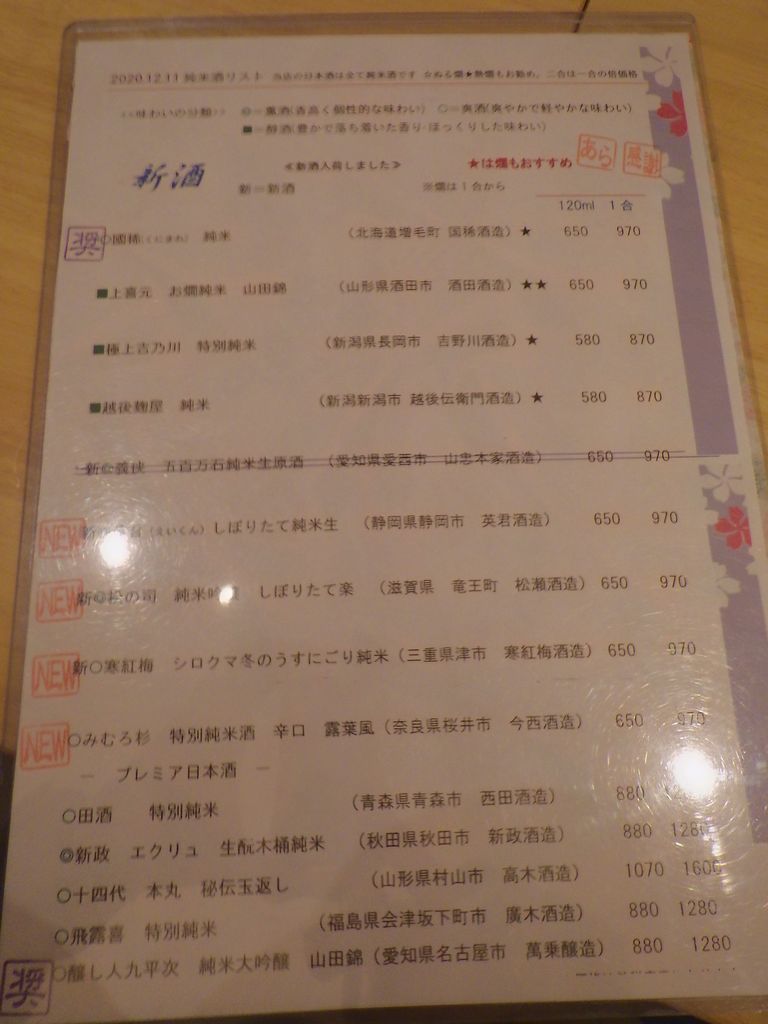 2020.12.11 純米酒リスト 当店の日本酒は全て純米酒です ☆ぬる燗★熱燗もお勧め。二合は一合の倍価格
<<味わいの分類>> ◎=薫酒(香高く個性的な味わい) ○=爽酒(爽やかで軽やかな味わい)
■=醇酒(豊かで落ち着いた香り ほっくりした味わい)
あら 感謝
新酒 ≪新酒入荷しました≫ ★は燗もおすすめ
新=新酒 ※燗は1合から
120ml 1合
奨 ○國稀(くにまれ) 純米 (北海道増毛町 国稀酒造) ★ 650 970
■上喜元 お燗純米 山田錦 (山形県酒田市 酒田酒造) ★★ 650 970
■極上吉乃川 特別純米 (新潟県長岡市 吉野川酒造) ★ 580 870
■越後麹屋 純米 (新潟新潟市 越後伝衛門酒造) ★ 580 870
新◎義侠 五百万石純米生原酒 (愛知県愛西市 山忠本家酒造) 650 970
NEW 新 (えいくん) しぼりたて純米生 (静岡県静岡市 英君酒造) 650 970
NEW 新◎松の司 純米吟 しぼりたて楽 (滋賀県 竜王町 松瀬酒造) 650 970
NEW 新○寒紅梅 シロクマ冬のうすにごり純米 (三重県津市 寒紅梅酒造) 650 970
NEW ○みむろ杉 特別純米酒 辛口 露葉風 (奈良県桜井市 今西酒造) 650 970
― プレミア日本酒 ―
○田酒 特別純米 (青森県青森市 西田酒造) 880
◎新政 エクリュ 生酛木桶純米 (秋田県秋田市 新政酒造) 880 1280
○十四代 本丸 秘伝玉返し (山形県村山市 高木酒造) 1070 1600
○飛露喜 特別純米 (福島県会津坂下町市 廣木酒造) 880 1280
奨 ○醸し人九平次 純米大吟醸 山田錦 (愛知県名古屋市 萬乗醸造) 880 1280